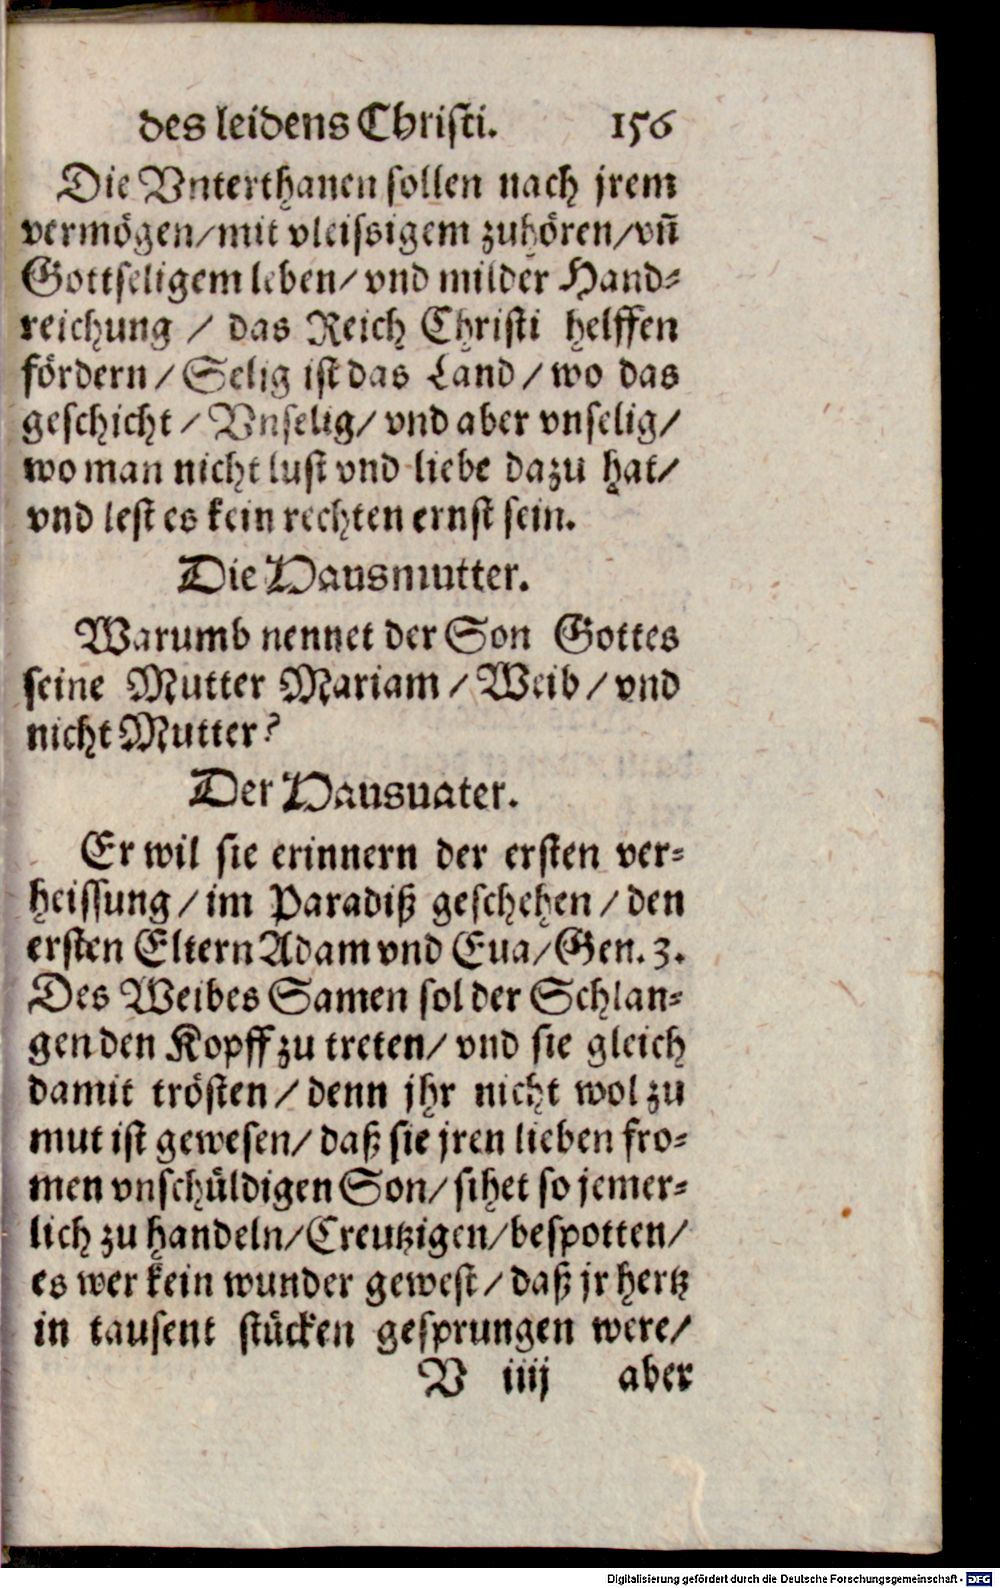 des leidens Christi. 156
Die Vnterthanen sollen nach jrem
vermögen/mit vleissigem zuhören/vn̄
Gottseligem leben/ vnd milder Hand-
reichung / das Reich Christi helffen
fördern/ Selig ist das Land/ wo das
geschicht/ Vnselig/ vnd aber vnselig/
wo man nicht lust vnd liebe dazu hat/
vnd lest es kein rechten ernst sein.
Die Hausmutter.
Warumb nennet der Son Gottes
seine Mutter Mariam/ Weib/ vnd
nicht Mutter?
Der Hausuater.
Er wil sie erinnern der ersten ver-
heissung/im Paradiß geschehen/ den
ersten Eltern Adam vnd Eua/Gen. 3.
Des Weibes Samen sol der Schlan-
gen den Kopff zu treten/ vnd sie gleich
damit trösten/ denn jhr nicht wol zu
mut ist gewesen/ daß sie jren lieben fro-
men vnschüldigen Son/ sihet so jemer-
lich zu handeln/Creutzigen/bespotten/
es wer kein wunder gewest/ daß jr hertz
in tausent stücken gesprungen were/
V iiij aber
Digitalisierung gefördert durch die Deutsche Forschungsgemeinschaft - DFG